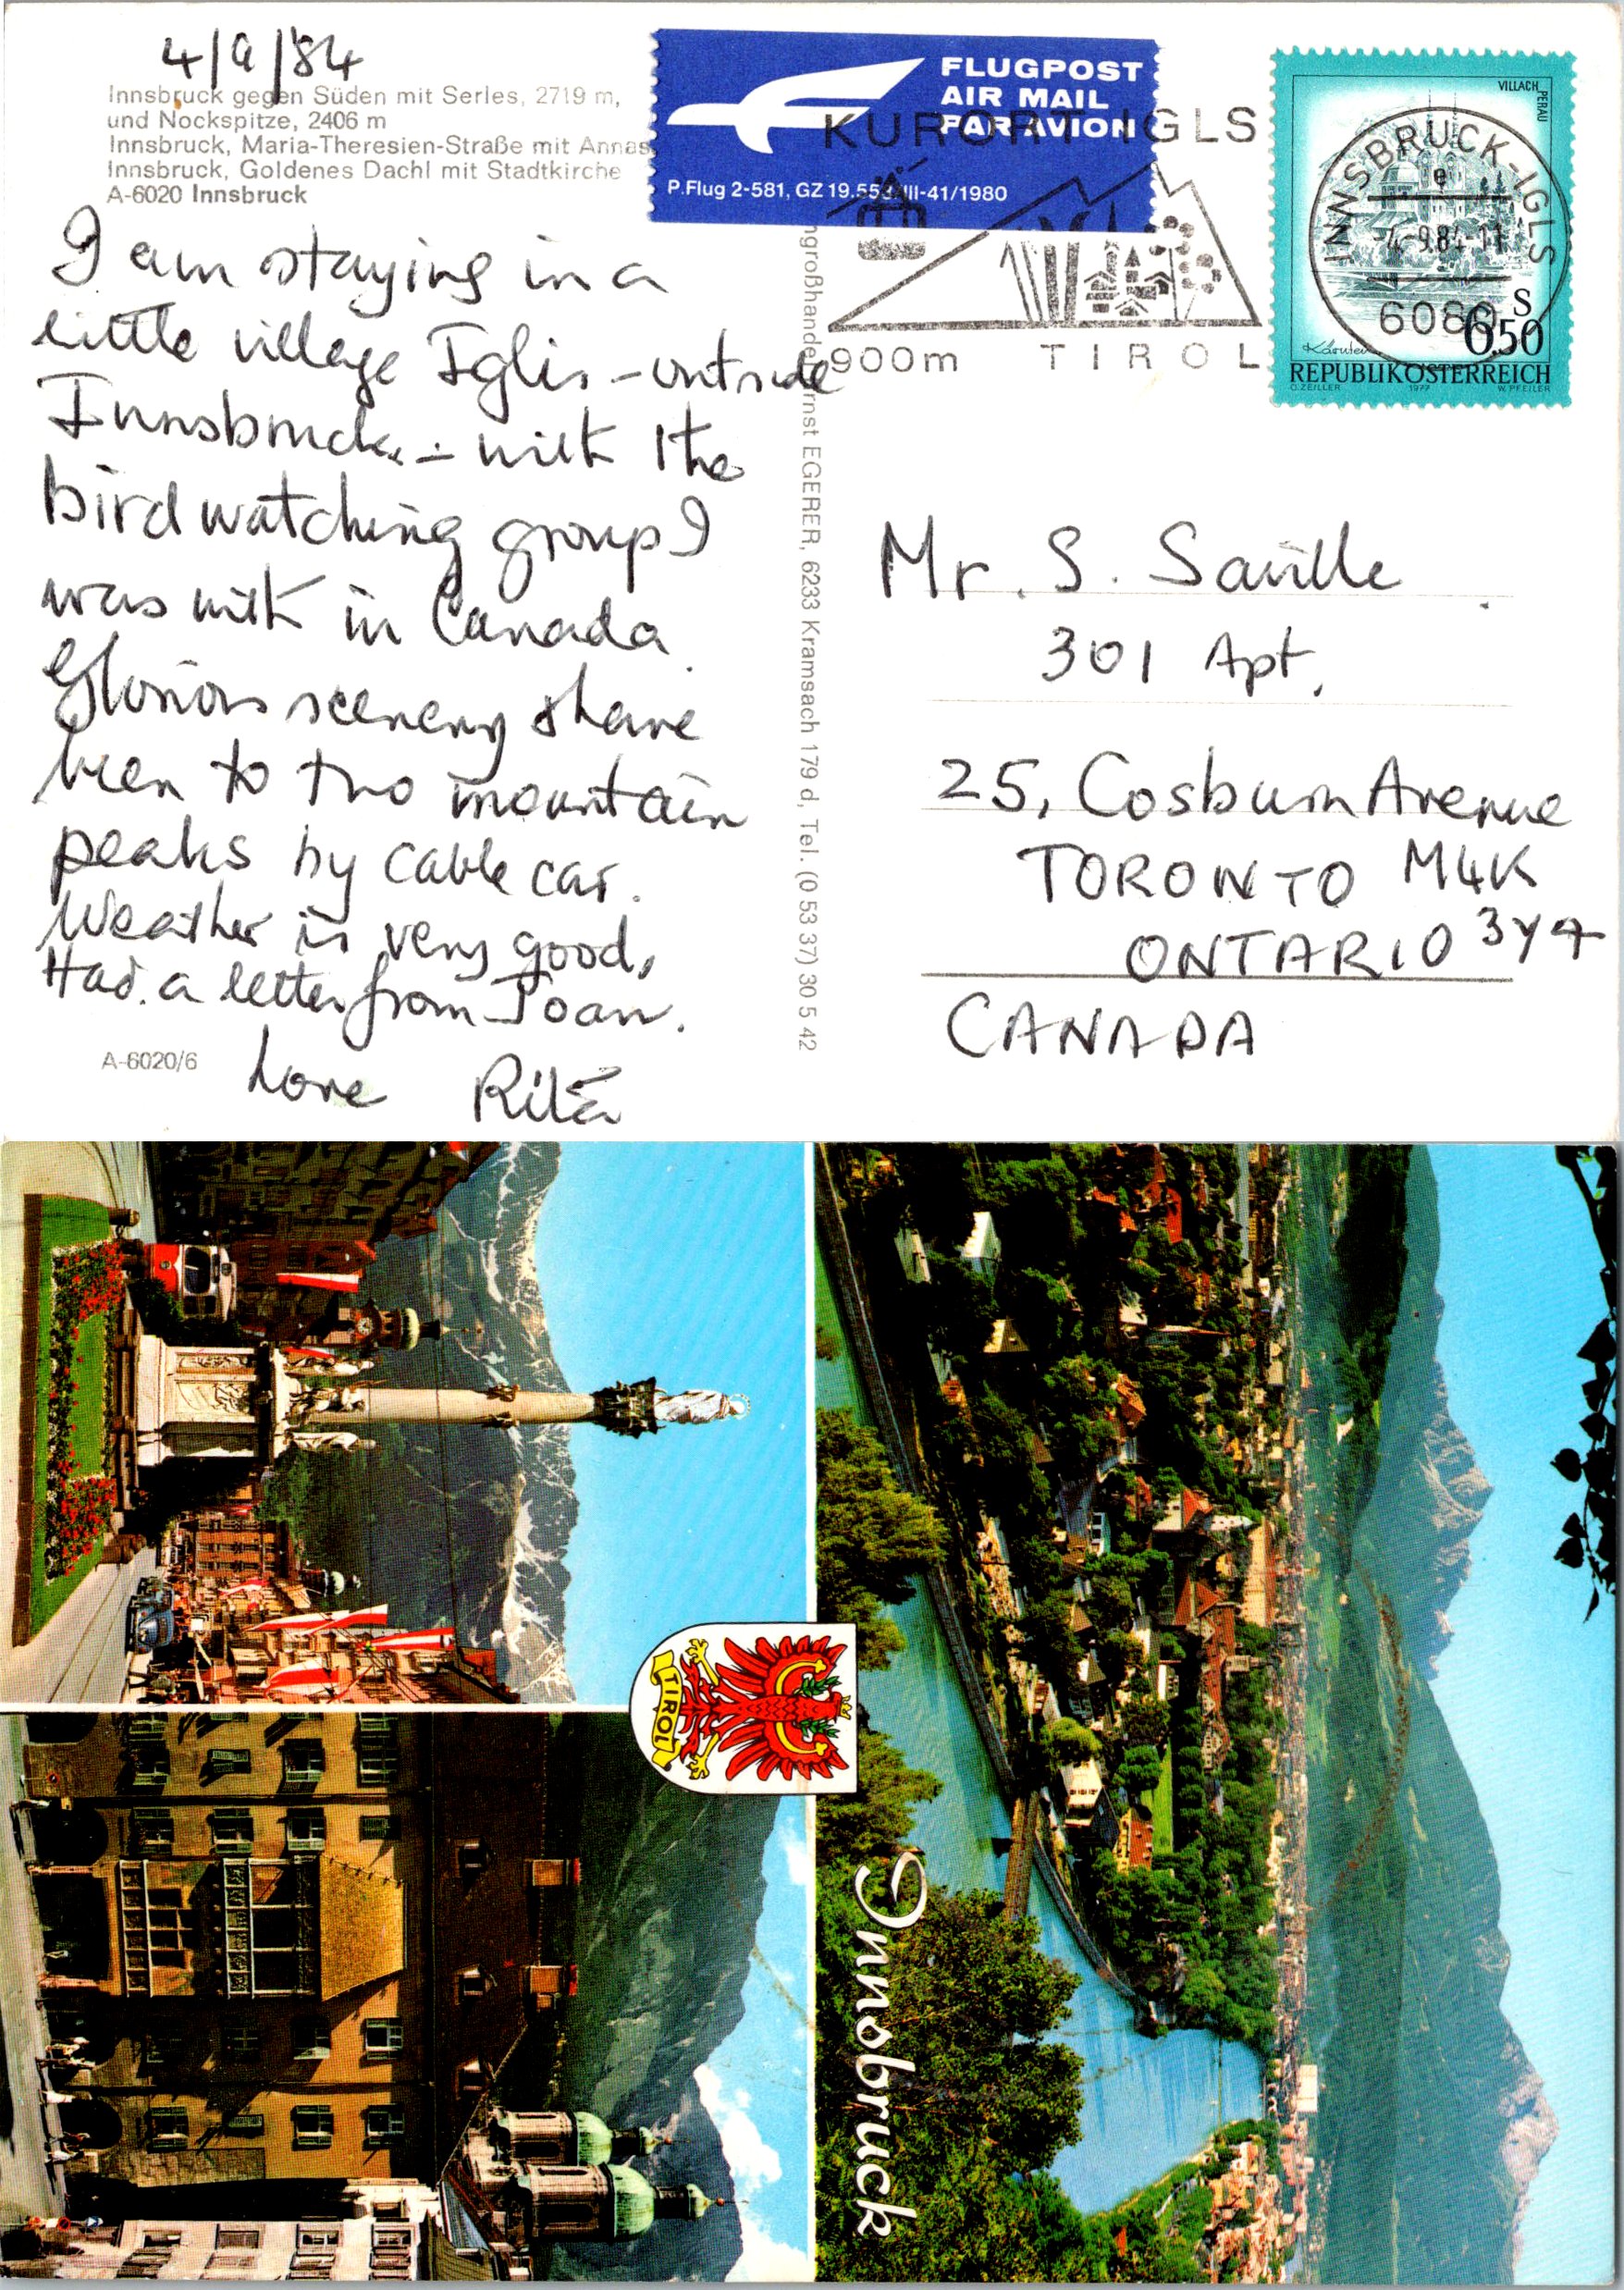 4/9/'84
Innsbruck gegen Süden mit Serles, 2719 m,
und Nockspitze, 2406 m
Innsbruck, Maria-Theresien-Straße mit Annas
Innsbruck, Goldenes Dachl mit Stadtkirche
A-6020 Innsbruck
I am staying in a
little village Iglis - outside
Innsbruck. - with the
bird watching group I
was with in Canada.
Glorious scenery & have
been to two mountain
peaks by cable car.
Weather is very good,
Had. a letter from Joan.
Love Rita
A-6020/6
FLUGPOST
AIR MAIL
PAR AVION
P.Flug 2-581, GZ 19.553/III-41/1980
KURORT IGLS
900m TIROL
VILLACH PERAU
INNSBRUCK-IGLS
e
-4.-9.84-11
6080
S
6.50
Kärnten
REPUBLIK ÖSTERREICH
O.ZEILLER 1977 W.PFEILER
ngroßhande
rnst EGERER, 6233 Kramsach 179 d, Tel. (0 53 37) 30 5 42
Mr. S. Saville
301 Apt.
25, Cosburn Avenue
TORONTO M4K
ONTARIO 3Y7
CANADA
TIROL
Innsbruck